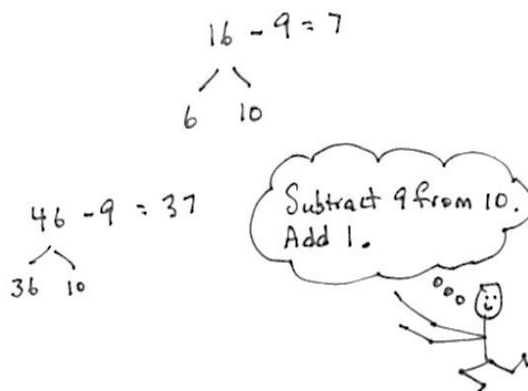 16 - 9 = 7
6 10
46 - 9 = 37
36 10
Subtract 9 from 10.
Add 1.